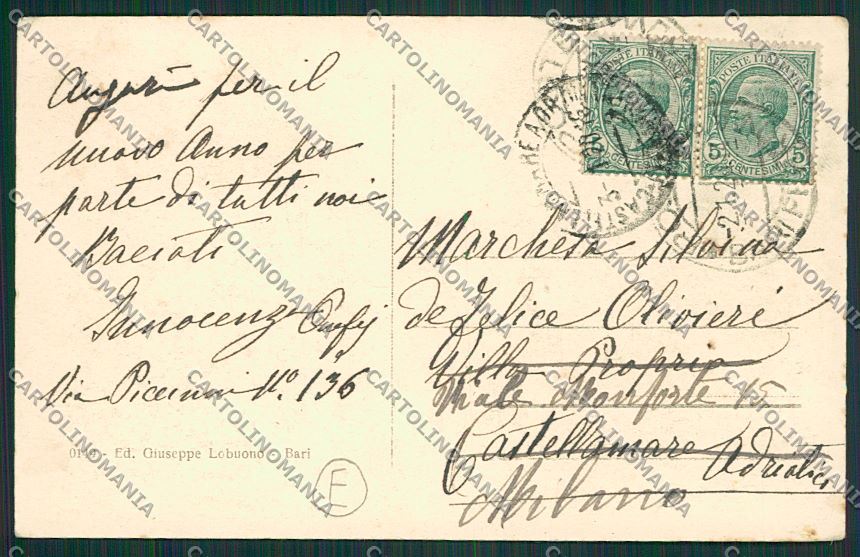 Auguri per il
nuovo Anno per
parte di tutti noi
Baciati
Innocenzo
Via Piccinni No. 136
0144 - Ed. Giuseppe Lobuono - Bari
E
POSTE ITALIANE
5 CENTESIMI 5
POSTE ITALIANE
5 CENTESIMI 5
Marchesa Silvina
de Felice Olivieri
Villa Propria
Viale Monforte 15
Castellamare Adriatico
Milano
CARTOLINOMANIA